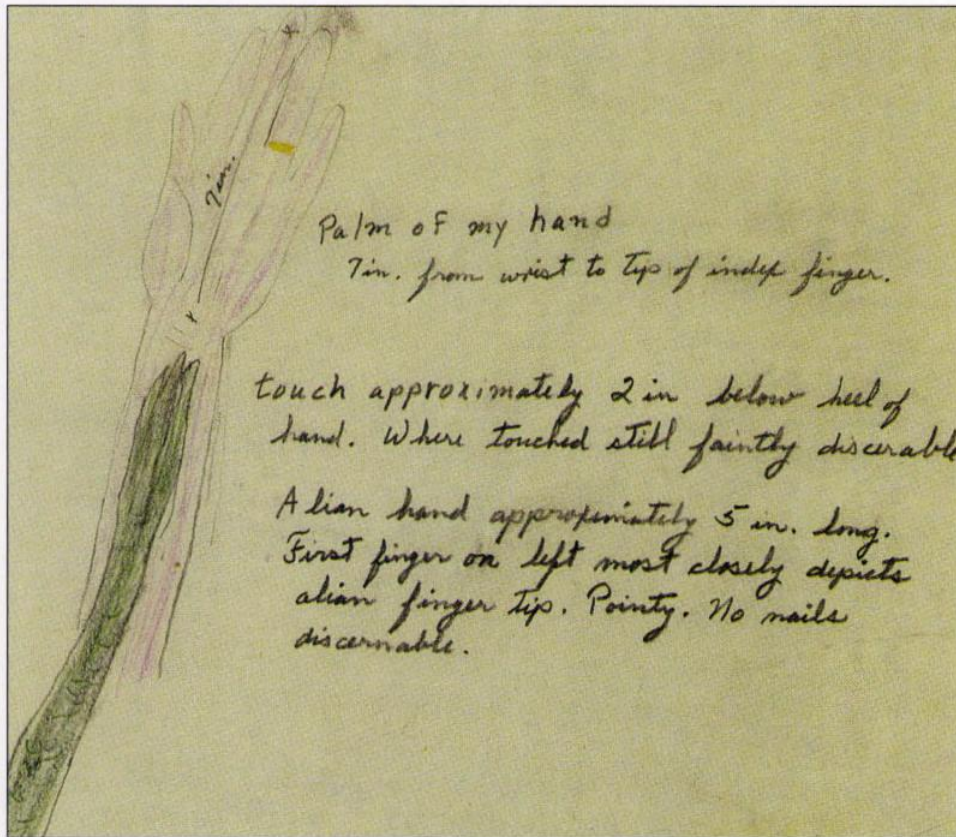 7 in.
Palm of my hand
7 in. from wrist to tip of index finger.
touch approximately 2 in below heel of
hand. Where touched still faintly discerable
Alian hand approximately 5 in. long.
First finger on left most closely depicts
alian finger tip. Pointy. No nails
discernable.